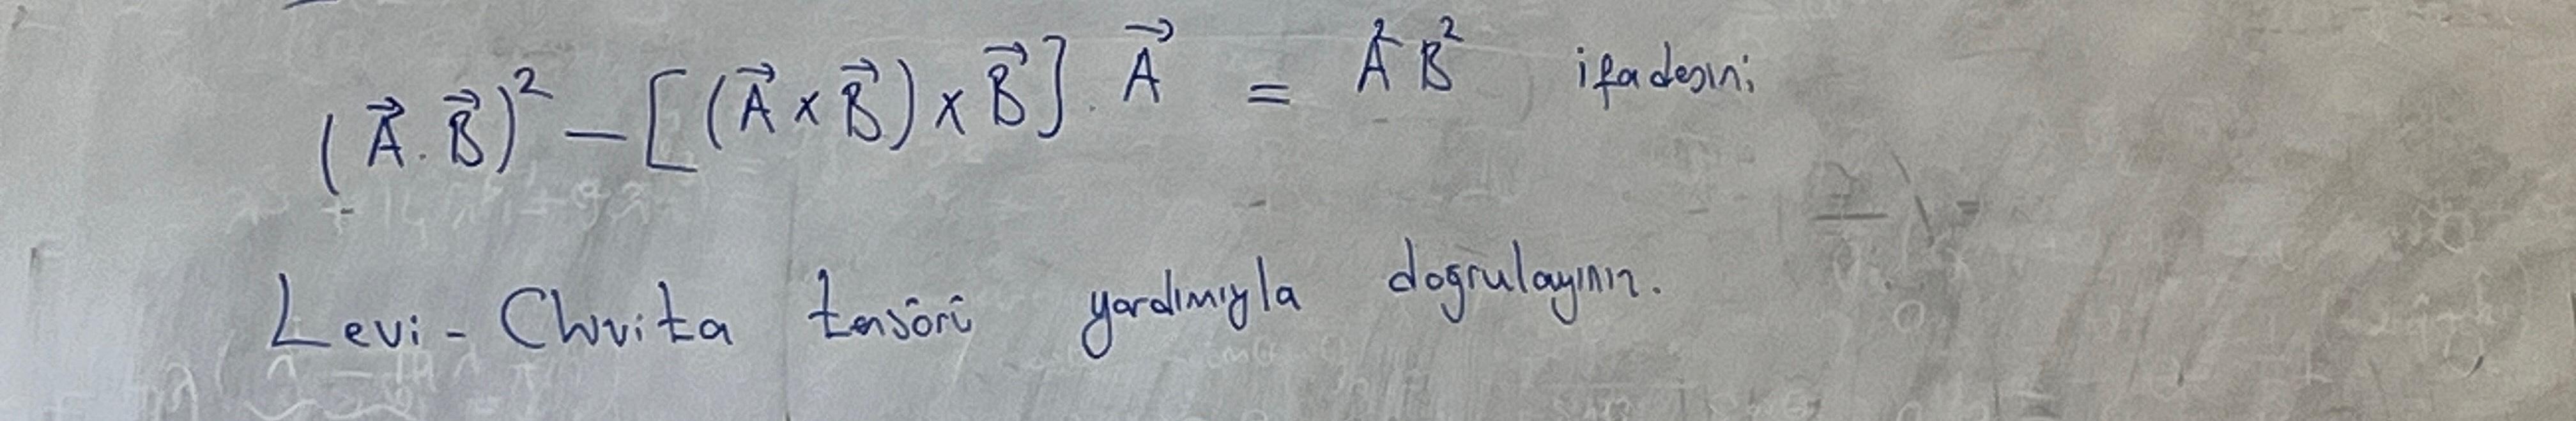 (A⃗.B⃗)² − [(A⃗×B⃗)×B⃗].A⃗ = A²B² ifadesini
Levi-Chvita tensörü yardımıyla doğrulayınız.